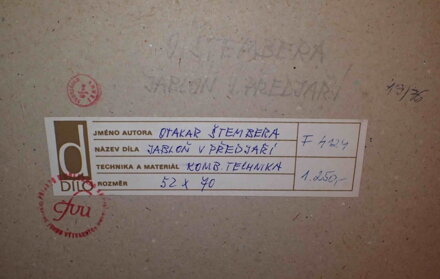 O. ŠTEMBERA
JABLOŇ V PŘEDJAŘÍ
d
DÍLO
JMÉNO AUTORA OTAKAR ŠTEMBERA
NÁZEV DÍLA JABLOŇ V PŘEDJAŘÍ
TECHNIKA A MATERIÁL KOMB. TECHNIKA
ROZMĚR 52 x 70
F 4124
1.250,-
čfvu